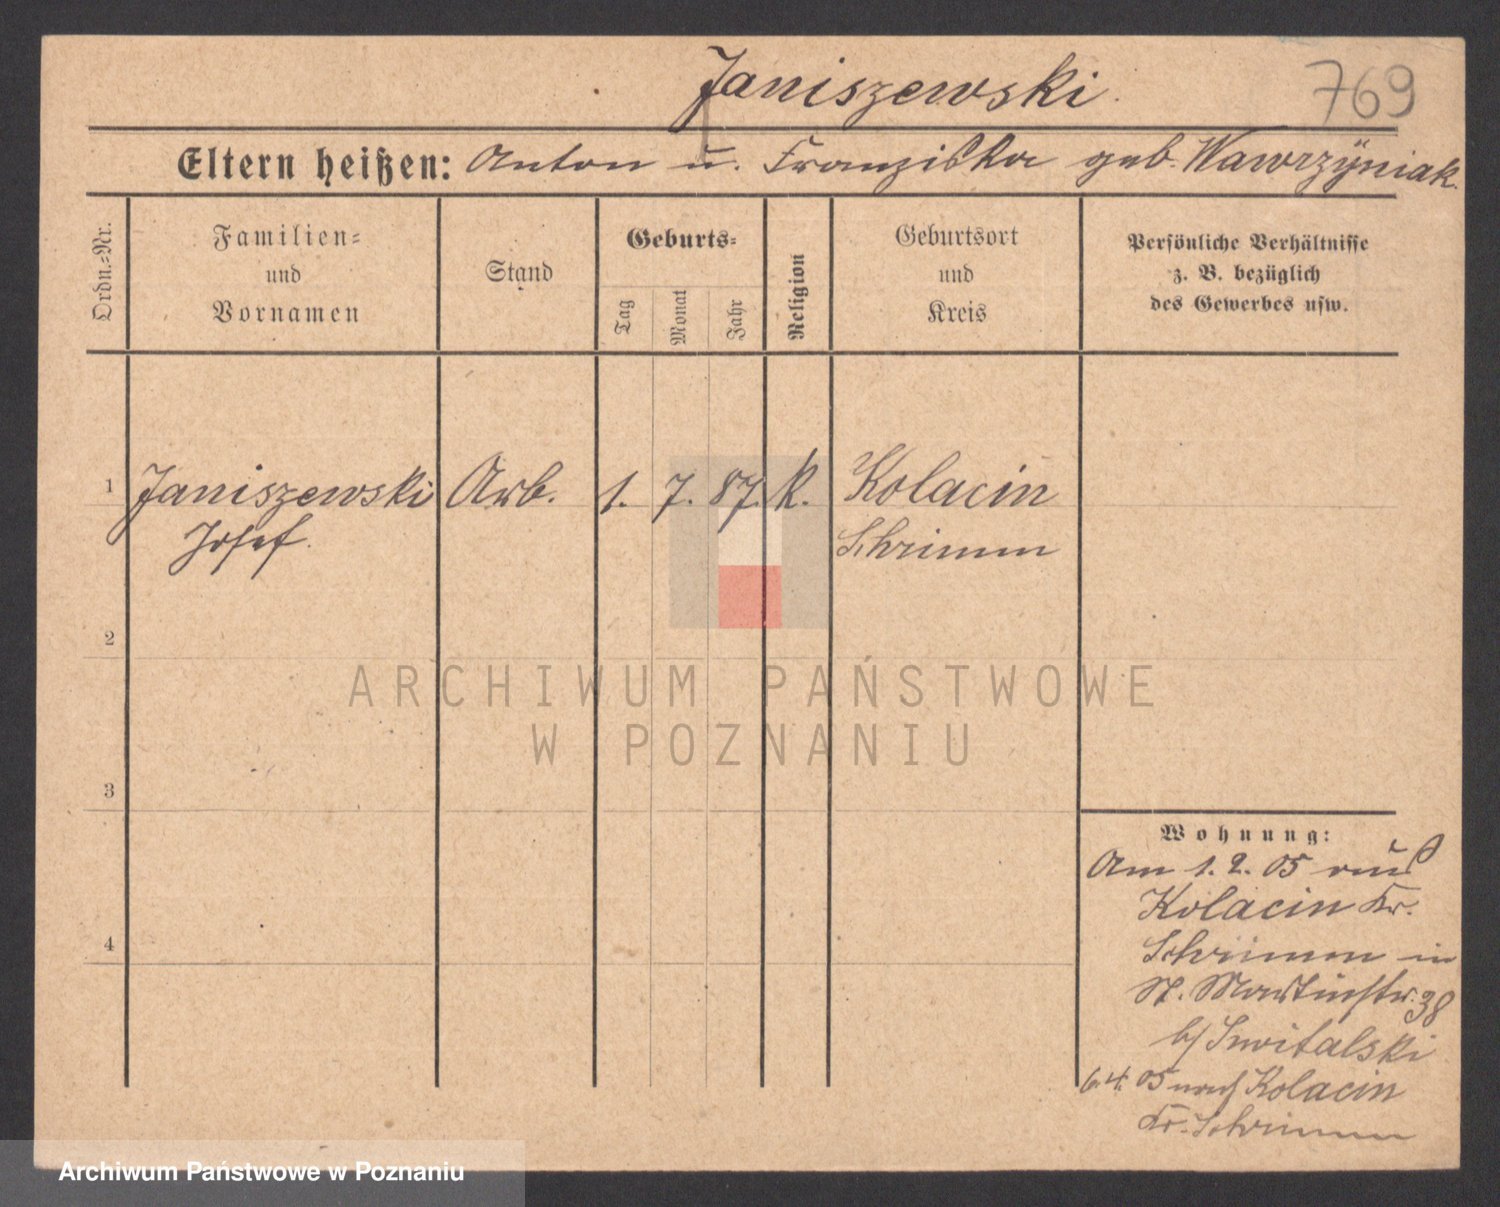 Janiszewski
769
Eltern heißen: Anton u. Franziska geb. Wawrzÿniak.
Ordn.-Nr.
Familien-
und
Vornamen
Stand
Geburts-
Tag
Monat
Jahr
Religion
Geburtsort
und
Kreis
Persönliche Verhältnisse
z. B. bezüglich
des Gewerbes usw.
1 Janiszewski Arb. 1. 7. 87. k. Kolacin
Josef. Schrimm
2
3
4
Wohnung:
Am 1. 2. 05 aus
Kolacin Kr.
Schrimm in
St. Martinstr. 38
b/ Switalski
6. 4. 05 nach Kolacin
Kr. Schrimm
ARCHIWUM PAŃSTWOWE
W POZNANIU
Archiwum Państwowe w Poznaniu